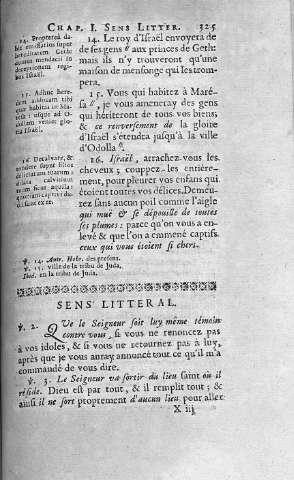 CHAP. I. SENS LITTER. 325
14. Propterea da-
bit emissarios super
hereditatem Geth:
domus mendacii in
deceptionem regi-
bus Israël.
15. Adhuc here-
dem adducam tibi
quæ habitas in Ma-
resa : usque ad O-
dollam veniet glo-
ria Israël.
16. Decalvare, &
tondere super filios
deliciarum tuarum :
dilata calvitium
tuum sicut aquila :
quoniam captivi du-
cti sunt ex te.
14. Le roy d'Israël envoyera de
de ses gens aux princes de Geth:
mais ils n'y trouveront qu'une
maison de mensonge qui les trom-
pera.
15. Vous qui habitez à Maré-
sa, je vous ameneray des gens
qui hériteront de tous vos biens;
& ce renversement de la gloire
d'Israël s'étendra jusqu'à la ville
d'Odolla.
16. Israël, arrachez-vous les
cheveux ; couppez-les entiere-
ment, pour pleurer vos enfans qui
étoient toutes vos délices. Demeu-
rez sans aucun poil comme l'aigle
qui mue & se dépouille de toutes
ses plumes : parce qu'on vous a en-
levé & que l'on a emmené captifs
ceux qui vous étoient si chers.
℣. 14. Autr. Hebr. des presens.
℣. 15. ville de la tribu de Juda.
Ibid. en la tribu de Juda.
SENS LITTERAL.
℣. 2. Que le Seigneur soit luy même témoin
contre vous, si vous ne renoncez pas
à vos idoles, & si vous ne retournez pas à luy,
après que je vous auray annoncé tout ce qu'il m'a
commandé de vous dire.
℣. 3. Le Seigneur va sortir du lieu saint où il
réside. Dieu est par tout, & il remplit tout ; &
ainsi il ne sort proprement d'aucun lieu pour aller
X iij